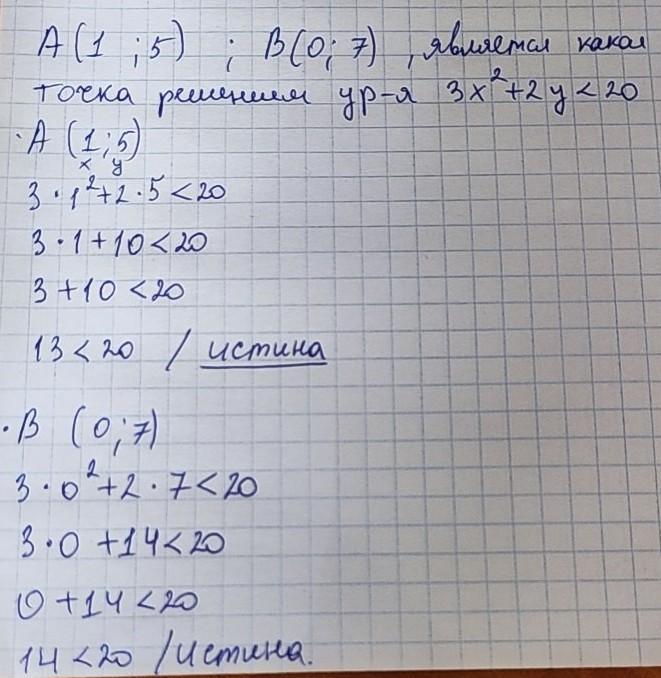 A (1 ; 5) ; B (0; 7) , является какая
точка решением ур-я 3x²+2y<20
· A (1; 5)
x y
3 · 1²+2 · 5 <20
3 · 1 + 10 <20
3 + 10 <20
13 < 20 / истина
· B (0; 7)
3 · 0²+2 · 7 <20
3 · 0 +14<20
0 +14 <20
14 <20 /истина.